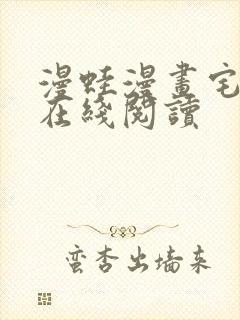 漫蛙漫畫宅
在綫閱讀
蛮杏出墙来